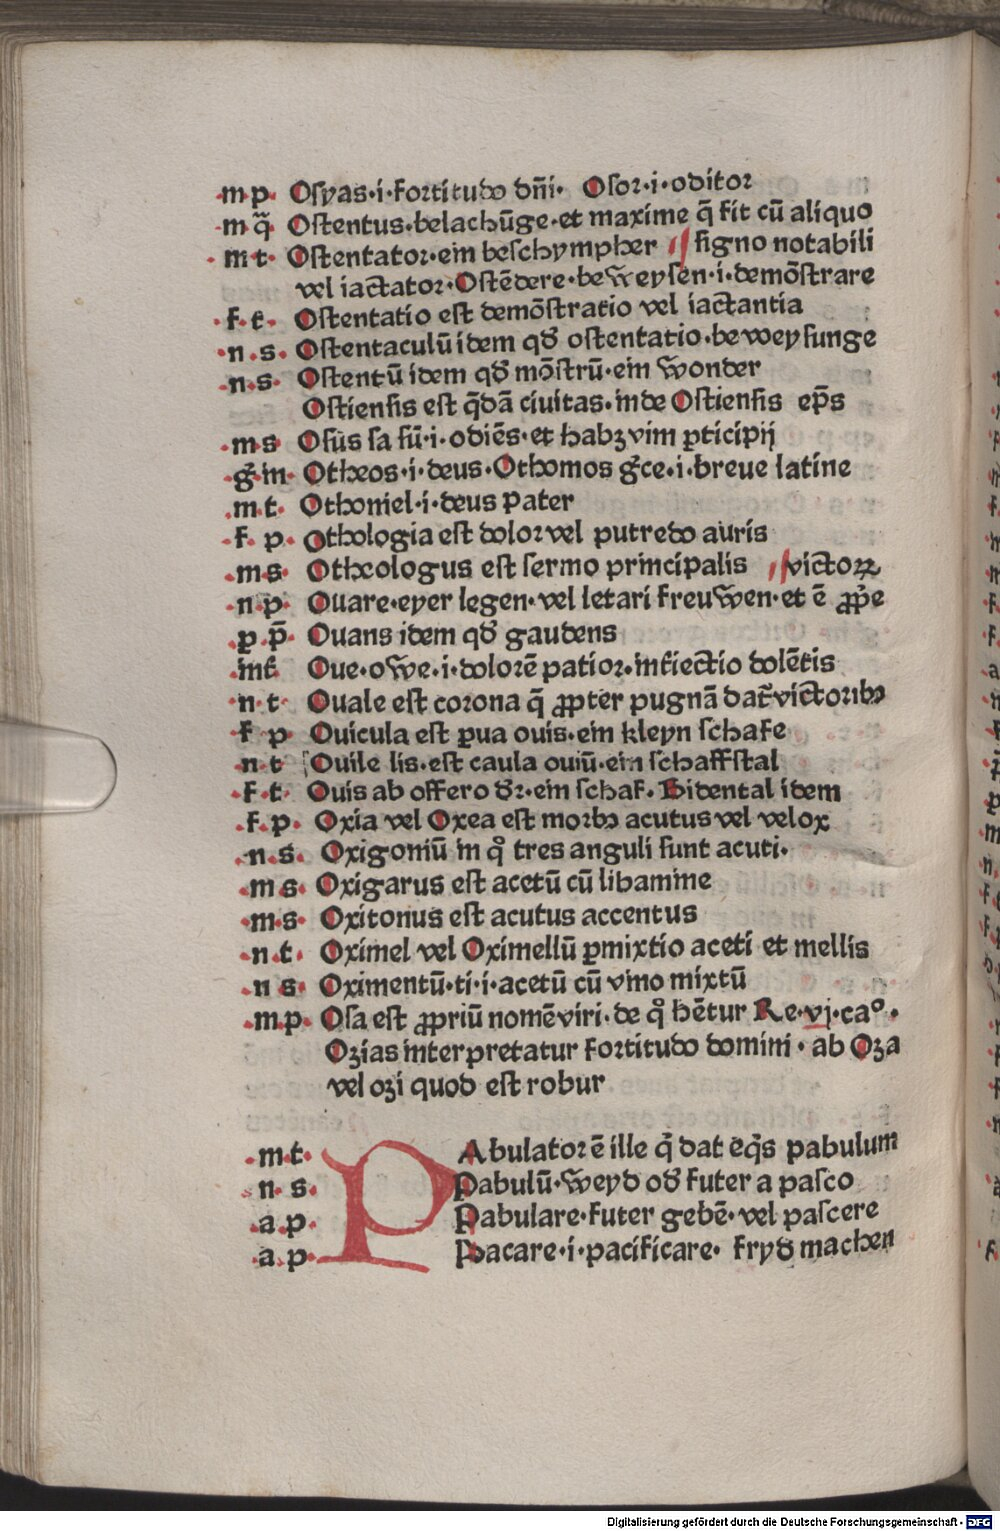 m p. Osyas·i·fortitudo dn̄i· Osor·i·oditor
·m q̄. Ostentus·belachūge·et maxime q̄ fit cū aliquo
·m t· Ostentator·ein beschympher signo notabili
vel iactator·Ostēdere·beweysen·i·demōstrare
·f. t· Ostentatio est demōstratio vel iactantia
·n .s. Ostentaculū idem qđ ostentatio·beweysunge
·n.s. Ostentū idem qđ mōstrū·ein wonder
Ostiensis est q̄dā ciuitas·inde Ostiensis ep̄s
·m s Osus sa sū·i·odiēs·et habꝫ vim ꝑticipij
·g̃·m· Otheos·i·deus·Othomos g̃ce·i·breue latine
·m t. Othoniel·i·deus pater
·f. p. Othologia est dolor vel putredo auris
·m s· Otheologus est sermo principalis victoꝝ
·n p· Ouare·eyer legen·vel letari freuwen·et ē ꝓp̄e
·ꝑ p̄· Ouans idem qđ gaudens
·int Oue·owe·i·dolorē patior·intiectio dolētis
·n t· Ouale est corona q̄ ꝓpter pugnā dat̃ victoribꝫ
·f p Ouicula est ꝑua ouis·ein kleyn schafe
·n t Ouile lis·est caula ouiū·ein schaffstal
·f t· Ouis ab offero đr·ein schaf·Bidental idem
·f.p. Oxia vel Oxea est morbꝫ acutus vel velox
·n .s. Oxigoniū in q° tres anguli sunt acuti·
·m s· Oxigarus est acetū cū libamine
·m s· Oxitonus est acutus accentus
·n t· Oximel vel Oximellū ꝑmixtio aceti et mellis
·n s· Oximentū·ti·i·acetū cū vino mixtū
·m p· Osa est ꝓpriū nomē viri·de q° hētur Re·vj·ca°·
Ozias interpretatur fortitudo domini·ab Oza
vel ozi quod est robur
·m t· PAbulator ē ille q̇ dat eq̄s pabulum
·n· s· Pabulū·weyd ođ futer a pasco
·a p· Pabulare·futer gebē·vel pascere
·a p· Pacare·i·pacificare· fryđ machen
Digitalisierung gefördert durch die Deutsche Forschungsgemeinschaft - DFG